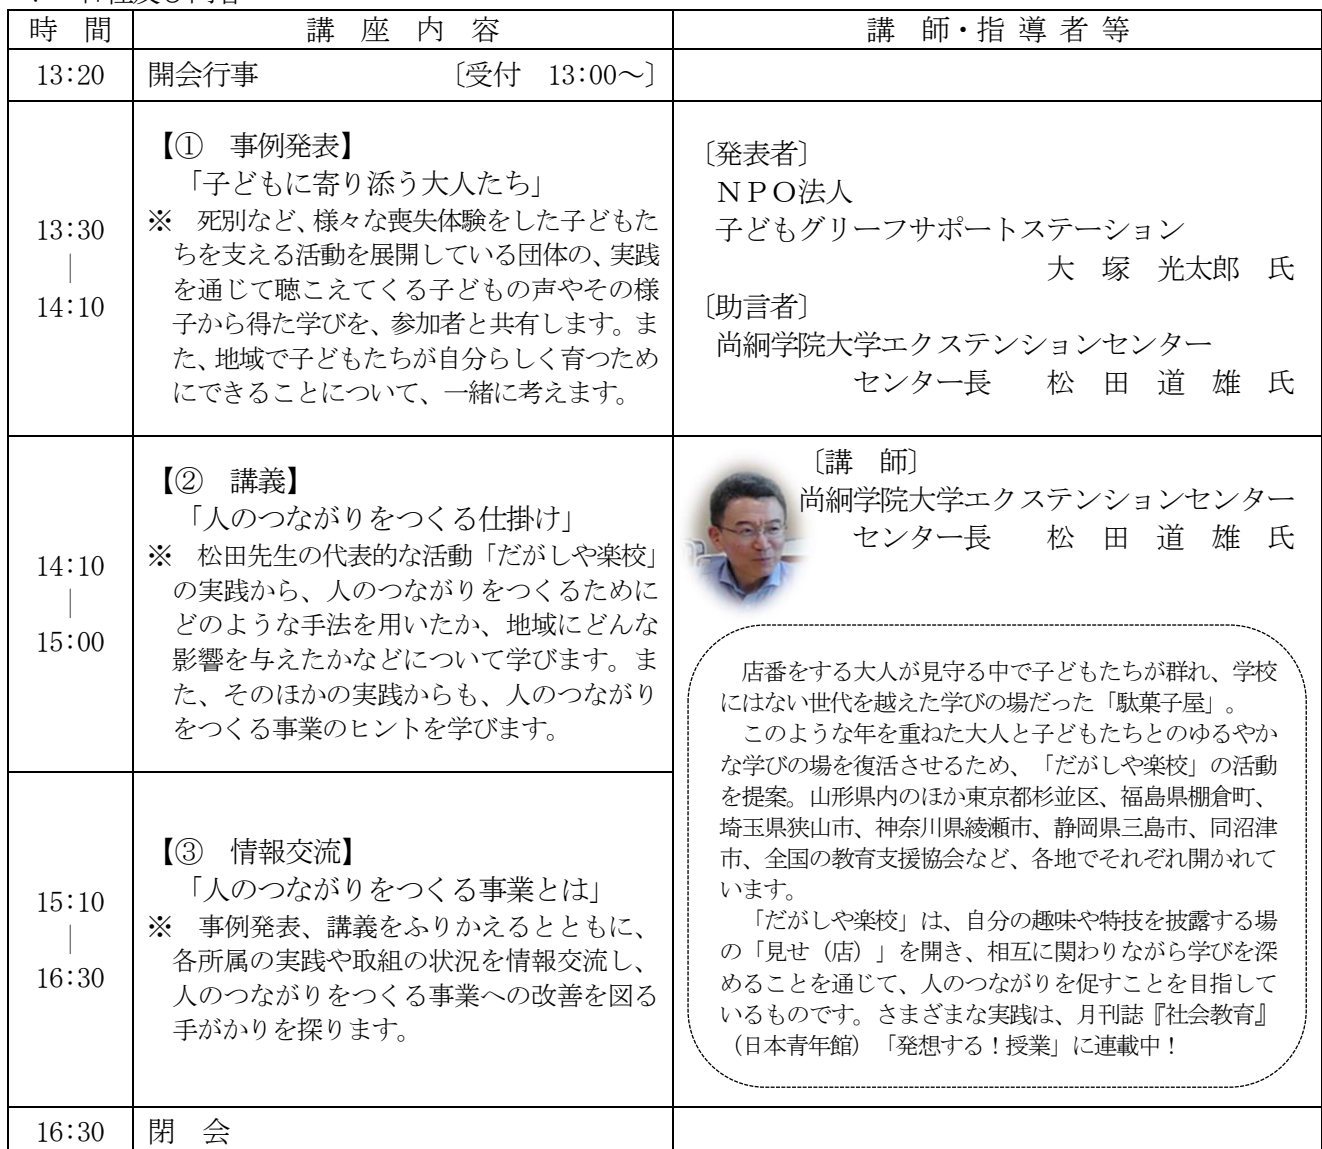 時　間
講　座　内　容
講　師・指 導 者 等
13:20
開会行事　〔受付　13:00～〕
13:30
｜
14:10
【①　事例発表】
「子どもに寄り添う大人たち」
※　死別など、様々な喪失体験をした子どもた
ちを支える活動を展開している団体の、実践
を通じて聴こえてくる子どもの声やその様
子から得た学びを、参加者と共有します。ま
た、地域で子どもたちが自分らしく育つため
にできることについて、一緒に考えます。
〔発表者〕
ＮＰＯ法人
子どもグリーフサポートステーション
大　塚　光太郎　氏
〔助言者〕
尚絅学院大学エクステンションセンター
センター長　松　田　道　雄　氏
14:10
｜
15:00
【②　講義】
「人のつながりをつくる仕掛け」
※　松田先生の代表的な活動「だがしや楽校」
の実践から、人のつながりをつくるために
どのような手法を用いたか、地域にどんな
影響を与えたかなどについて学びます。ま
た、そのほかの実践からも、人のつながり
をつくる事業のヒントを学びます。
〔講　師〕
尚絅学院大学エクステンションセンター
センター長　松　田　道　雄　氏
店番をする大人が見守る中で子どもたちが群れ、学校
にはない世代を越えた学びの場だった「駄菓子屋」。
このような年を重ねた大人と子どもたちとのゆるやか
な学びの場を復活させるため、「だがしや楽校」の活動
を提案。山形県内のほか東京都杉並区、福島県棚倉町、
埼玉県狭山市、神奈川県綾瀬市、静岡県三島市、同沼津
市、全国の教育支援協会など、各地でそれぞれ開かれて
います。
「だがしや楽校」は、自分の趣味や特技を披露する場
の「見せ（店）」を開き、相互に関わりながら学びを深
めることを通じて、人のつながりを促すことを目指して
いるものです。さまざまな実践は、月刊誌『社会教育』
（日本青年館）「発想する！授業」に連載中！
15:10
｜
16:30
【③　情報交流】
「人のつながりをつくる事業とは」
※　事例発表、講義をふりかえるとともに、
各所属の実践や取組の状況を情報交流し、
人のつながりをつくる事業への改善を図る
手がかりを探ります。
16:30
閉　会